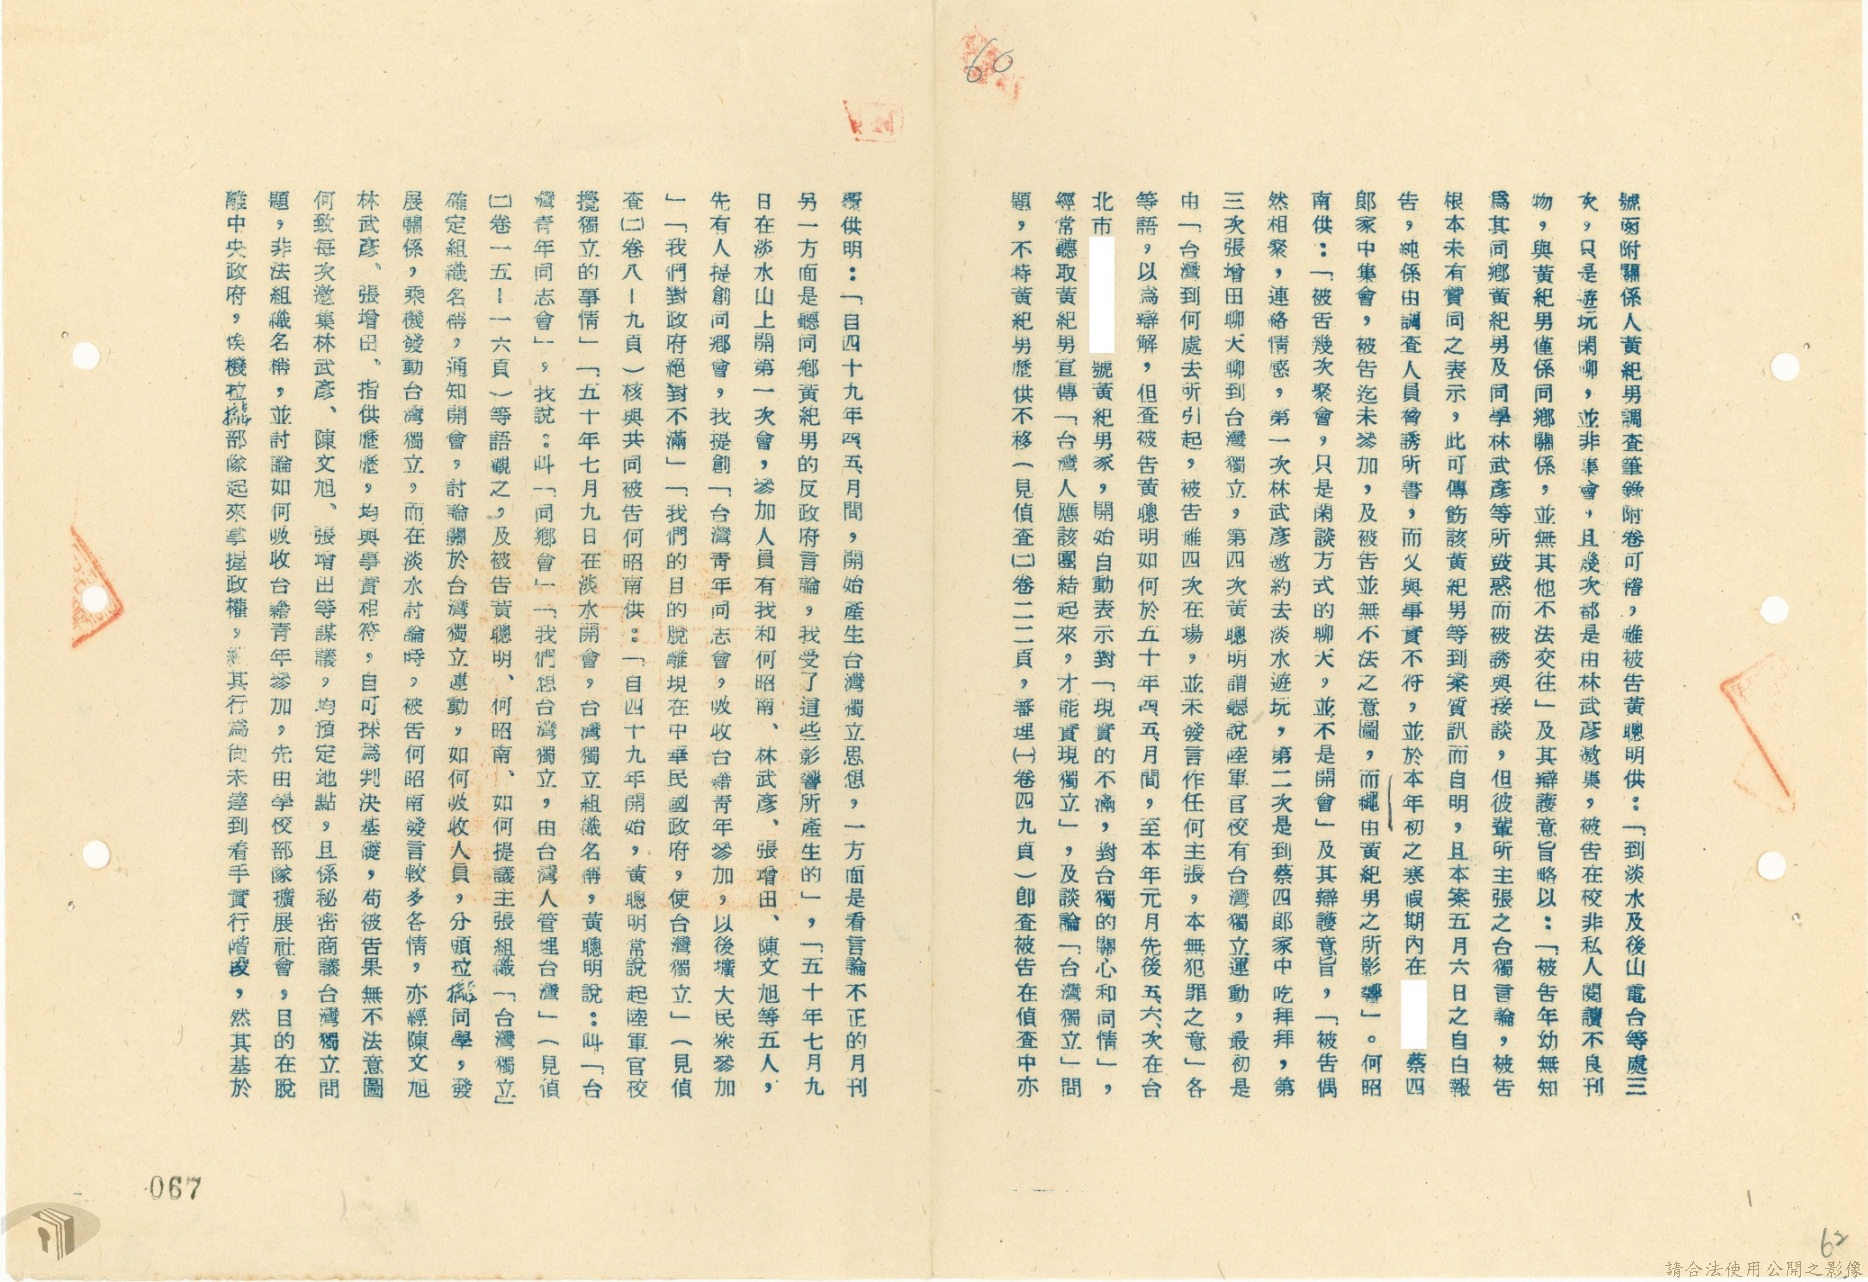 60
號函附關係人黃紀男調查筆錄附卷可稽，雖被告黃聰明供：「到淡水及後山電台等處三
次，只是遊玩閑聊，並非集會，且幾次都是由林武彥邀集，被告在校非私人閱讀不良刊
物，與黃紀男僅係同鄉關係，並無其他不法交往」及其辯護意旨略以：「被告年幼無知
爲其同鄉黃紀男及同學林武彥等所鼓惑而被誘與接談，但彼輩所主張之台獨言論，被告
根本未有贊同之表示，此可傳飭該黃紀男等到案質訊而自明，且本案五月六日之自白報
告，純係由調查人員脅誘所書，而又與事實不符，並於本年初之寒假期內在 蔡四
郎家中集會，被告迄未參加，及被告並無不法之意圖，而純由黃紀男之所影響」。何昭
南供：「被告幾次聚會，只是閑談方式的聊天，並不是開會」及其辯護意旨，「被告偶
然相聚，連絡情感，第一次林武彥邀約去淡水遊玩，第二次是到蔡四郎家中吃拜拜，第
三次張增田聊天聊到台灣獨立，第四次黃聰明謂聽說陸軍官校有台灣獨立運動，最初是
由「台灣到何處去所引起，被告雖四次在場，並未發言作任何主張，本無犯罪之意」各
等語，以爲辯解，但查被告黃聰明如何於五十年四五月間，至本年元月先後五、六次在台
北市 號黃紀男家，開始自動表示對「現實的不滿，對台獨的關心和同情」，
經常聽取黃紀男宣傳「台灣人應該團結起來，才能實現獨立」，及談論「台灣獨立」問
題，不特黃紀男歷供不移（見偵查㈡卷二二頁，審理㈠卷四九頁）卽查被告在偵查中亦
覆供明：「自四十九年四五月間，開始產生台灣獨立思想，一方面是看言論不正的月刊
另一方面是聽同鄉黃紀男的反政府言論，我受了這些影響所產生的」，「五十年七月九
日在淡水山上開第一次會，參加人員有我和何昭南、林武彥、張增田、陳文旭等五人，
先有人提創同鄉會，我提創「台灣青年同志會，吸收台籍青年參加，以後擴大民衆參加
」「我們對政府絕對不滿」「我們的目的脫離現在中華民國政府，使台灣獨立」（見偵
查㈡卷八－九頁）核與共同被告何昭南供：「自四十九年開始，黃聰明常說起陸軍官校
攪獨立的事情」「五十年七月九日在淡水開會，台灣獨立組織名稱，黃聰明說：叫「台
灣青年同志會」，我說：叫「同鄉會」「我們想台灣獨立，由台灣人管理台灣」（見偵
㈡卷一五－一六頁）等語觀之，及被告黃聰明、何昭南、如何提議主張組織「台灣獨立」
確定組織名稱，通知開會，討論關於台灣獨立運動，如何吸收人員，分頭拉攏同學，發
展關係，乘機發動台灣獨立，而在淡水討論時，被告何昭南發言較多各情，亦經陳文旭
林武彥、張增田、指供歷歷，均與事實相符，自可採爲判決基礎，苟被告果無不法意圖
何致每次邀集林武彥、陳文旭、張增田等謀議，均預定地點，且係秘密商議台灣獨立問
題，非法組織名稱，並討論如何吸收台籍青年參加，先由學校部隊擴展社會，目的在脫
離中央政府，俟機拉攏部隊起來掌握政權，其行爲尙未達到着手實行階段，然其基於
067
62
請合法使用公開之影像